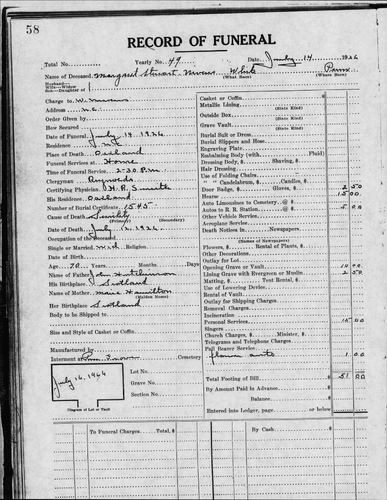 58
RECORD OF FUNERAL
Total No. Yearly No. 49 Date July 14 1926
Name of Deceased Margaret Stuart White
(What Race) (Where Born)
Husband—
Wife—Widow
Son—Daughter of
Charge to W.
Address N.E.
Order Given by
How Secured
Date of Funeral July 14 1926
Residence N.E.
Place of Death Oakland
Funeral Services at Home
Time of Service 2:30 P.M.
Clergyman Reynolds
Certifying Physician H. R. Smith
His Residence Oakland
Number of Burial Certificate 1545
Cause of Death Senility
(Primary) (Secondary)
Date of Death July 12 1926
Occupation of the Deceased
Single or Married Wid Religion
Date of Birth
Age 70 Years Months Days
Name of Father John Hutchinson
His Birthplace Scotland
Name of Mother Hamilton
(Maiden Name)
Her Birthplace Scotland
Body to be Shipped to
Size and Style of Casket or Coffin
Manufactured by
Interment at Cemetery
Lot No.
Grave No.
Section No.
July 14, 1926
Diagram of Lot or Vault
Casket or Coffin
Metallic Lining
(State Kind)
Outside Box
(State Kind)
Grave Vault
(State Kind)
Burial Suit or Dress
Burial Slippers and Hose
Engraving Plate
Embalming Body (with Fluid)
Dressing Body, $ Shaving, $
Hair Dressing
Use of Folding Chairs
" " Candelabrum, $ Candles, $
Door Badge, $ Gloves, $ 2 50
Hearse 15 00
Auto Limousines to Cemetery @ $
Autos to R. R. Station @ $ 5 00
Other Vehicle Service
Aeroplane Service
Death Notices in Newspapers
(Names of Newspapers)
Flowers, $ Rental of Plants, $
Other Decorations
Outlay for Lot
Opening Grave or Vault 10 00
Lining Grave with Evergreen or Muslin 2 50
Matting, $ Tent Rental, $
Use of Lowering Device
Rental of Vault
Outlay for Shipping Charges
Removal Charges
Incineration
Personal Services 15 00
Singers
Church Charges, $ Minister, $
Telegrams and Telephone Charges
Pall Bearer Service
flower auto 1 00
Total Footing of Bill $ 51 00
By Amount Paid in Advance
Balance
Entered into Ledger, page or below
To Funeral Charges Total, $ $
By Cash $